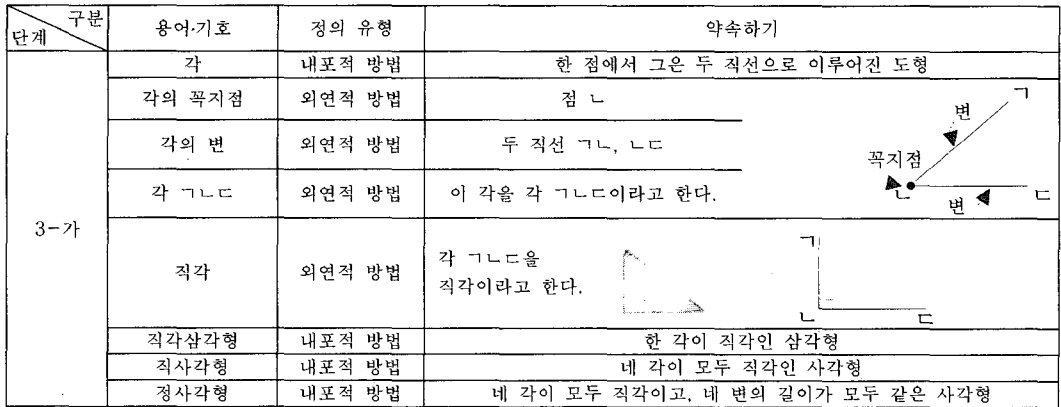 구분
단계
용어·기호
정의 유형
약속하기
3-가
각
내포적 방법
한 점에서 그은 두 직선으로 이루어진 도형
각의 꼭지점
외연적 방법
점 ㄴ
각의 변
외연적 방법
두 직선 ㄱㄴ, ㄴㄷ
각 ㄱㄴㄷ
외연적 방법
이 각을 각 ㄱㄴㄷ이라고 한다.
ㄱ
변
꼭지점
ㄴ
변
ㄷ
직각
외연적 방법
각 ㄱㄴㄷ을
직각이라고 한다.
ㄱ
ㄴ
ㄷ
직각삼각형
내포적 방법
한 각이 직각인 삼각형
직사각형
내포적 방법
네 각이 모두 직각인 사각형
정사각형
내포적 방법
네 각이 모두 직각이고, 네 변의 길이가 모두 같은 사각형